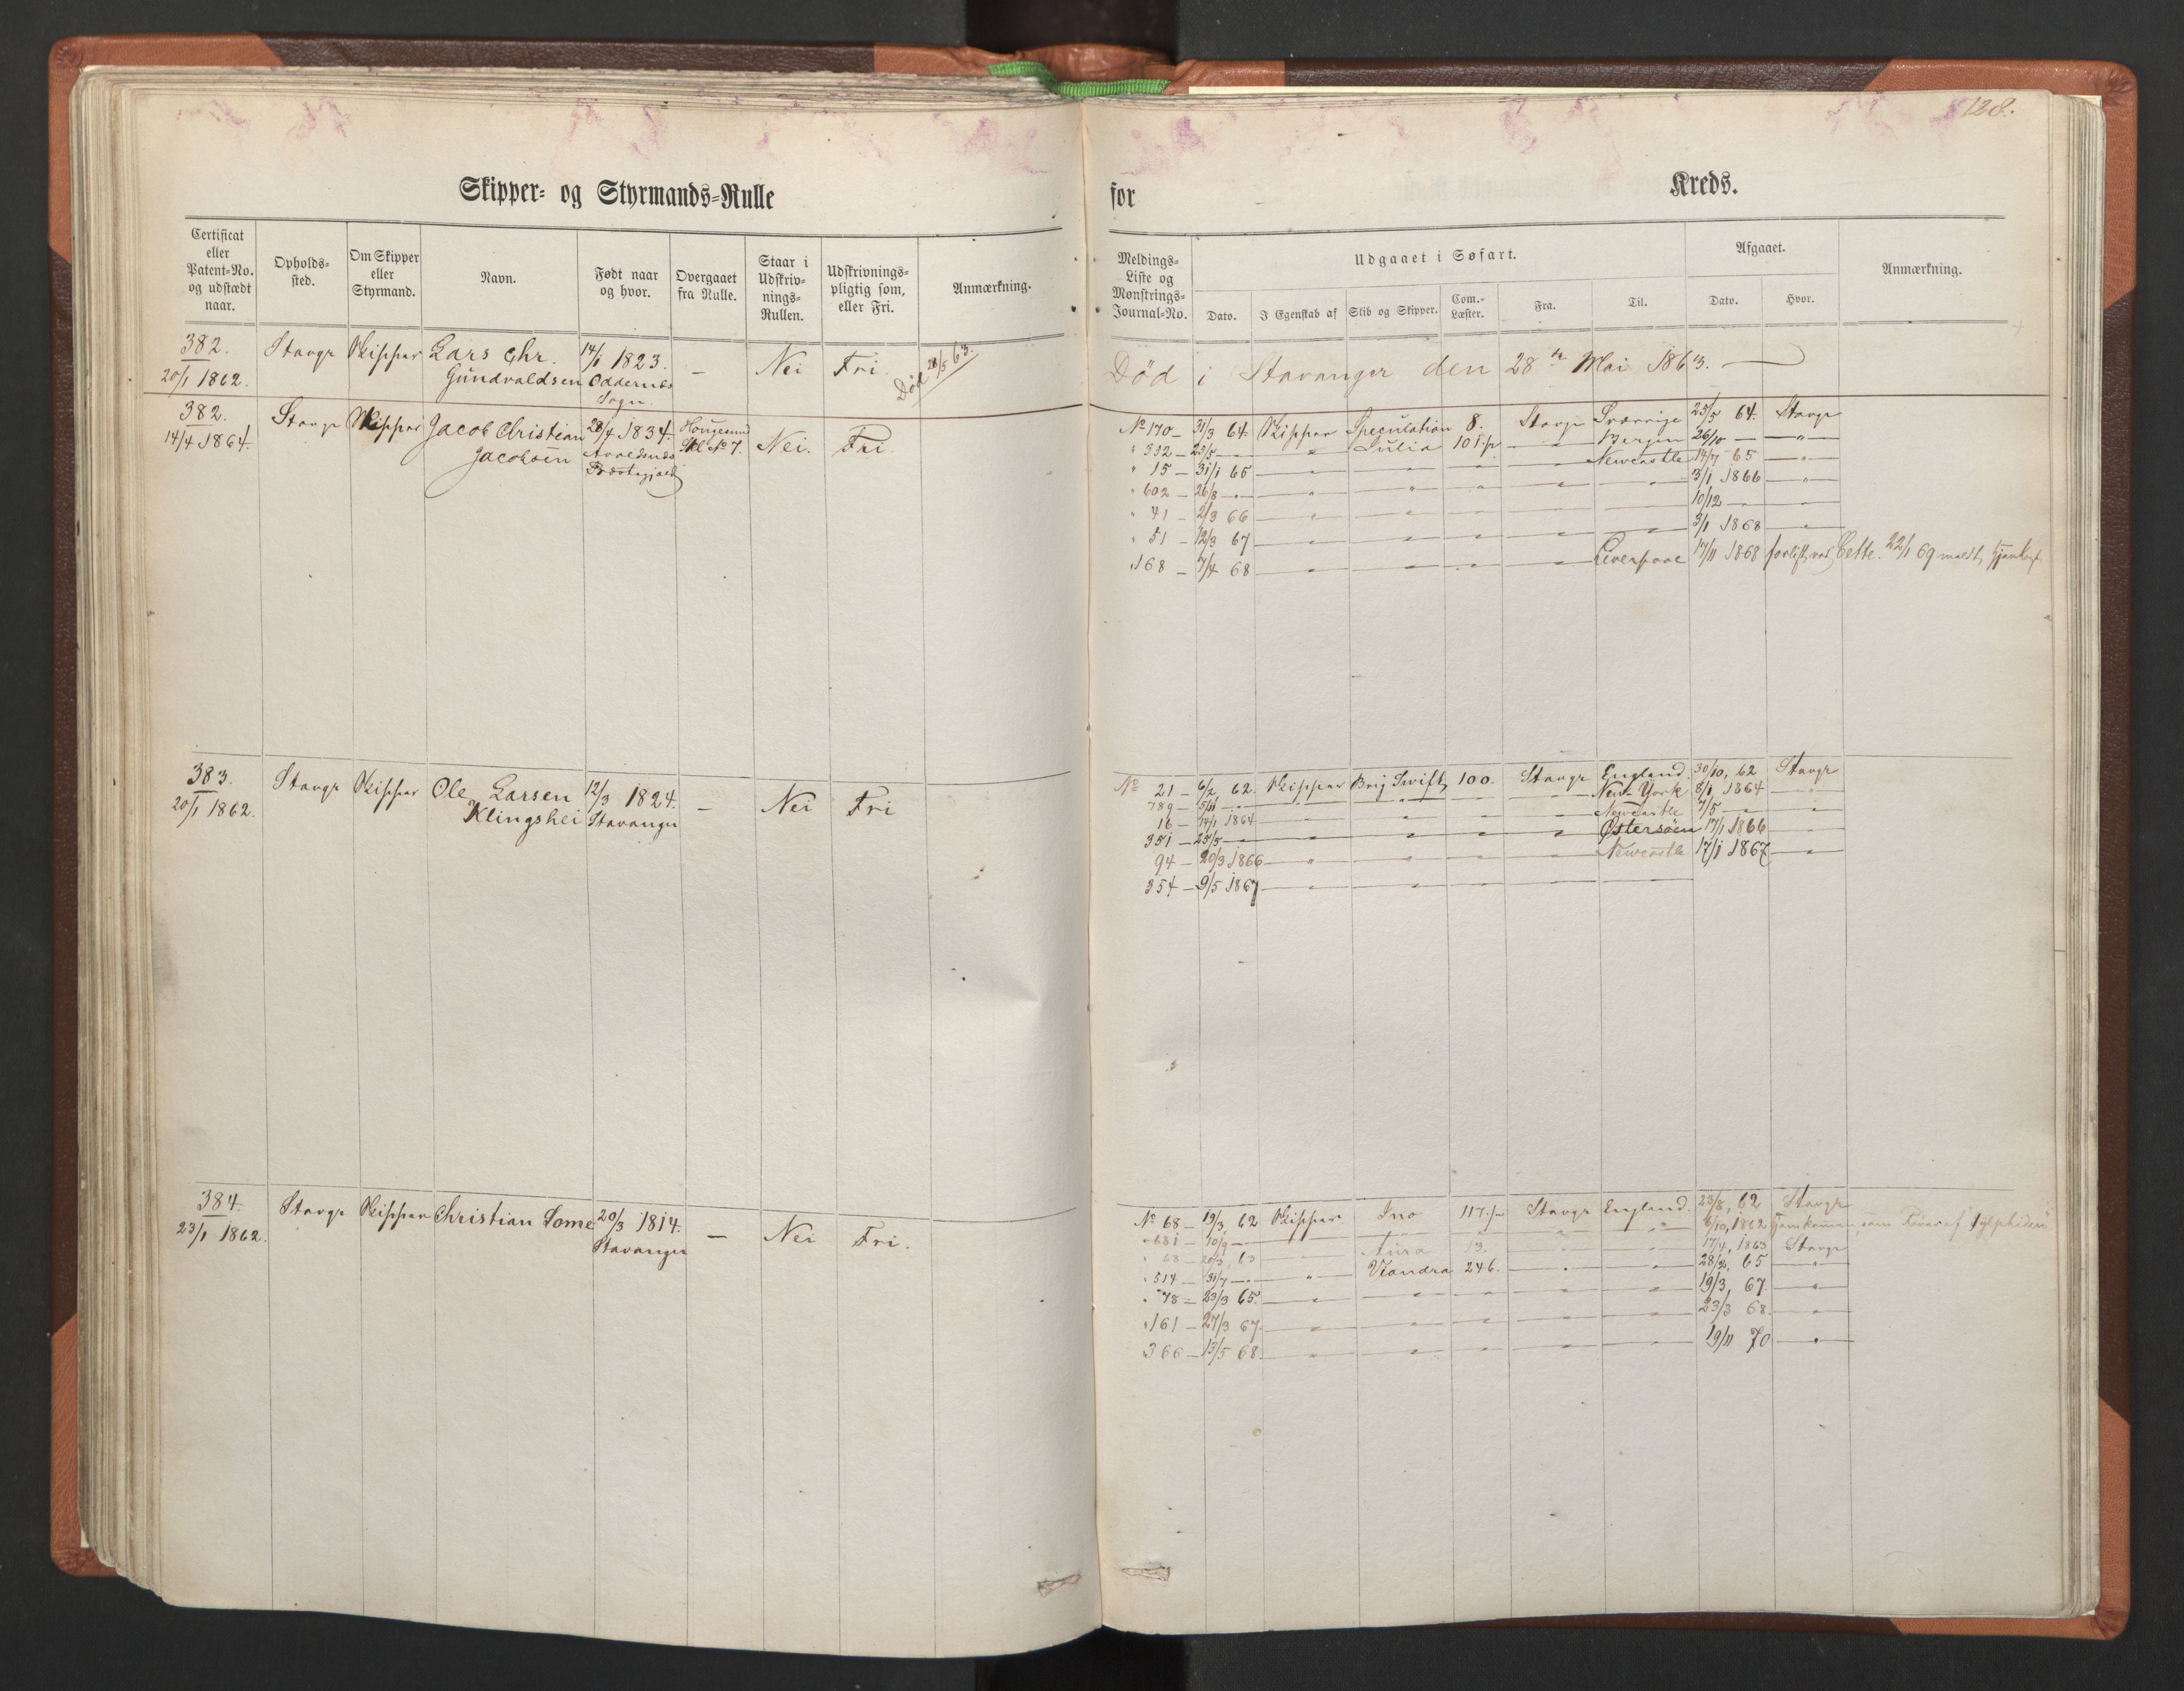 128.
Skipper- og Styrmands-Rulle
for
Kreds.
Certificat eller Patent-No. og udstædt naar.
Opholds-sted.
Om Skipper eller Styrmand.
Navn.
Født naar og hvor.
Overgaaet fra Rulle.
Staar i Udskriv-nings-Rullen.
Udskrivnings-pligtig som, eller Fri.
Anmærkning.
Meldings-Liste og Mønstrings-Journal-No.
Udgaaet i Søfart.
Dato.
I Egenskab af
Skib og Skipper.
Com.-Læster.
Fra.
Til.
Afgaaet.
Dato.
Hvor.
Anmærkning.
382. Stavgr Skipper Lars Chr. 14/1 1823. — Nei Fri. Død 28/5 63.
20/1 1862. Gundvaldsen Oddernes Sogn.
Død i Stavanger den 28de Mai 1863.
382. Stavgr Skipper Jacob Christian 28/4 1834. Hougesund Nei. Fri.
14/4 1864. Jacobsen Avaldsnes Præstegjæld No 7.
No 170 — 31/3 64. Skipper Speculation 8. Stavgr Sverrige 25/5 64. Stavgr
" 332 — 25/5 — " Julia 101 — Bergen 26/10 — "
" 15 — 31/1 65 — " — Newcastle 14/7 65 — "
" 602 — 26/8 — " — " — 3/1 1866 — "
" 41 — 2/3 66 — " — " — 10/12 — "
" 51 — 12/3 67 — " — " — 3/1 1868 — "
" 168 — 7/4 68 — " — Liverpool 17/11 1868 forlist, ved Cette. 22/1 69 meldt, hjemkst
383. Stavgr Skipper Ole Larsen 12/3 1824. — Nei Fri
20/1 1862. Klingshei Stavanger
No 21 — 6/2, 62. Skipper Brig Swift, 100. Stavgr England. 30/10, 62 Stavgr
789 — 5/11 — " — New-York 8/1 1864 — "
16 — 14/1 1864 — " — Newcastle 7/5 — "
351 — 25/5 — " — Østersøen 17/1 1866 — "
94 — 20/3 1866 — " — Newcastle 17/1 1867 — "
354 — 9/5 1867 — " — " —
384. Stavgr Skipper Christian Some 20/3 1814. — Nei Fri.
23/1 1862. Stavanger
No 68 — 19/3, 62 Skipper Ino 117 Stavgr England. 23/8, 62 Stavgr
" 681 — 10/9 — " — " 6/10, 1862 hjemkommen som Fører af Sylphiden
" 68 — 20/3, 63 " Aura 13. — " 17/4, 1863 Stavgr
" 514 — 31/7 — " 246. — " 28/2, 65 — "
" 78 — 23/3 65. — " — 19/3, 67. — "
" 161 — 27/3 67. — " — 23/3 68. — "
366 — 13/5 68. — " — 19/11 70 — "